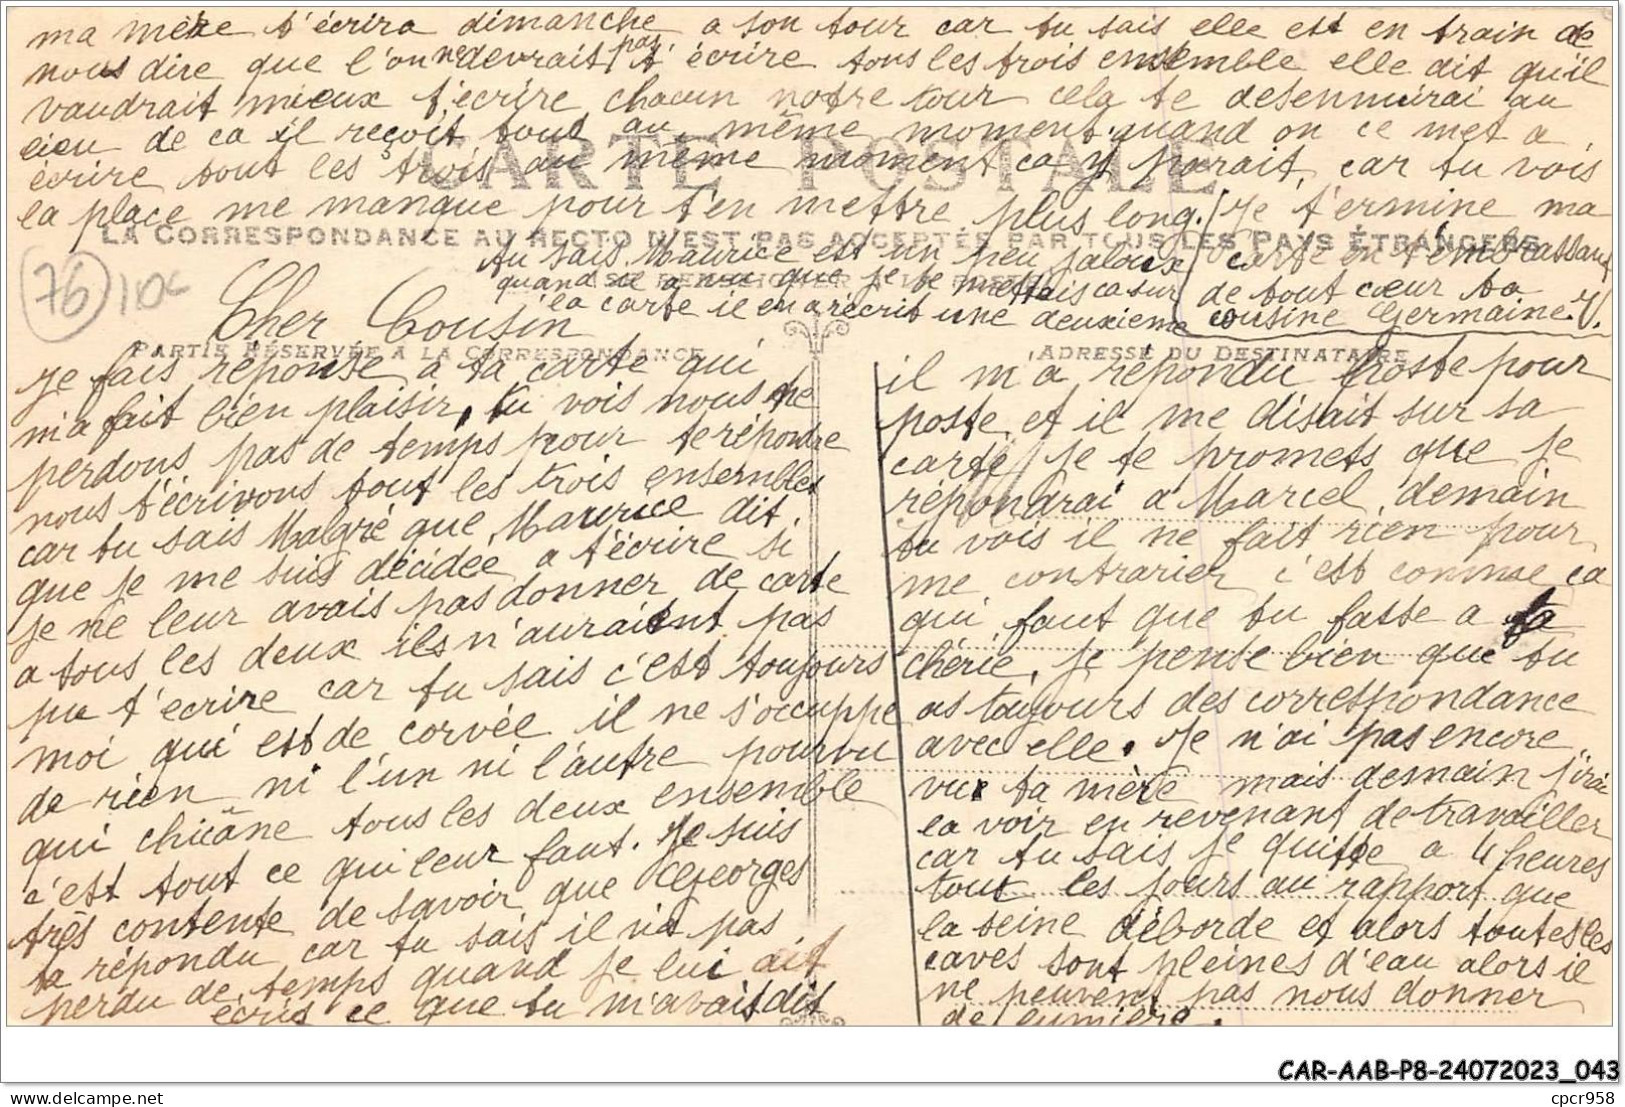 ma mère t'écrira dimanche a son tour car tu sais elle est en train de
nous dire que l'on ne devrait pas t'écrire tous les trois ensemble elle dit qu'il
vaudrait mieux t'écrire chacun notre tour cela te desennuirai au
lieu de ca il reçoit tout au même moment. quand on ce met a
écrire tout les trois au même moment ca y parait, car tu vois
la place me manque pour t'en mettre plus long. Je termine ma
carte en t'embrassant
de tout cœur ta
cousine Germaine. V.
CARTE POSTALE
LA CORRESPONDANCE AU RECTO N'EST PAS ACCEPTÉE PAR TOUS LES PAYS ÉTRANGERS
tu sais Maurice est un peu jaloux
quand il a vu que je te mettais ca sur
la carte il en a récrit une deuxieme
76 10c
Cher Cousin
PARTIE RÉSERVÉE A LA CORRESPONDANCE
ADRESSE DU DESTINATAIRE
Je fais réponse a ta carte qui
m'a fait bien plaisir, tu vois nous ne
perdons pas de temps pour te répondre
nous t'écrivons tout les trois ensembles
car tu sais Malgré que Maurice dit
que je me suis décidée a t'écrire si
je ne leur avais pas donner de carte
a tous les deux ils n'auraient pas
pu t'écrire car tu sais c'est toujours
moi qui est de corvée il ne s'occuppe
de rien ni l'un ni l'autre pourvu
qui chicâne tous les deux ensemble
c'est tout ce qui leur faut. Je suis
très contente de savoir que Georges
ta répondu car tu sais il n'a pas
perdu de temps quand je lui ait
écris ce que tu m'avait dit
il m'a répondu poste pour
poste et il me disait sur sa
carte je te promets que je
répondrai a Marcel demain
tu vois il ne fait rien pour
me contrarier c'est comme ca
qui faut que tu fasse a ta
chérie, je pense bien que tu
as toujours des correspondance
avec elle. Je n'ai pas encore
vue ta mère mais demain j'irai
la voir en revenant de travailler
car tu sais je quitte a 4 heures
tout les jours au rapport que
la seine déborde et alors toutes les
caves sont pleines d'eau alors il
ne peuvent pas nous donner
de lumière.
CAR-AAB-P8-24072023_043
cpcr958